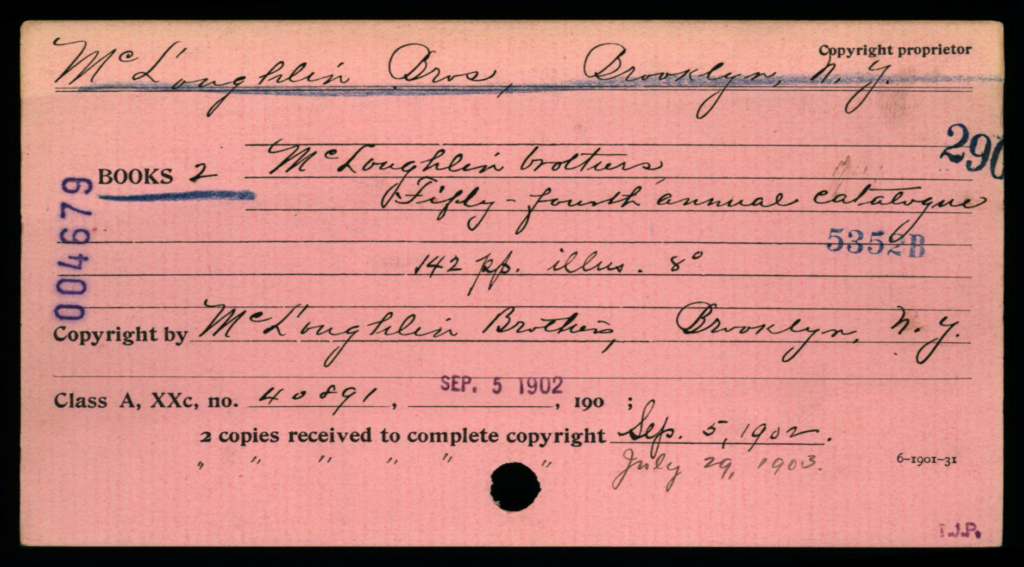 Copyright proprietor
McLoughlin Bros, Brooklyn, N.Y.
290
BOOKS 2 McLoughlin brothers
Fifty-fourth annual catalogue
5352B
142 pp. illus. 8°
004679
Copyright by McLoughlin Brothers, Brooklyn, N.Y.
Class A, XXc, no. 40891, SEP. 5 1902, 190 ;
2 copies received to complete copyright Sep. 5, 1902.
" " " " " " July 29, 1903.
6-1901-31
T.J.P.